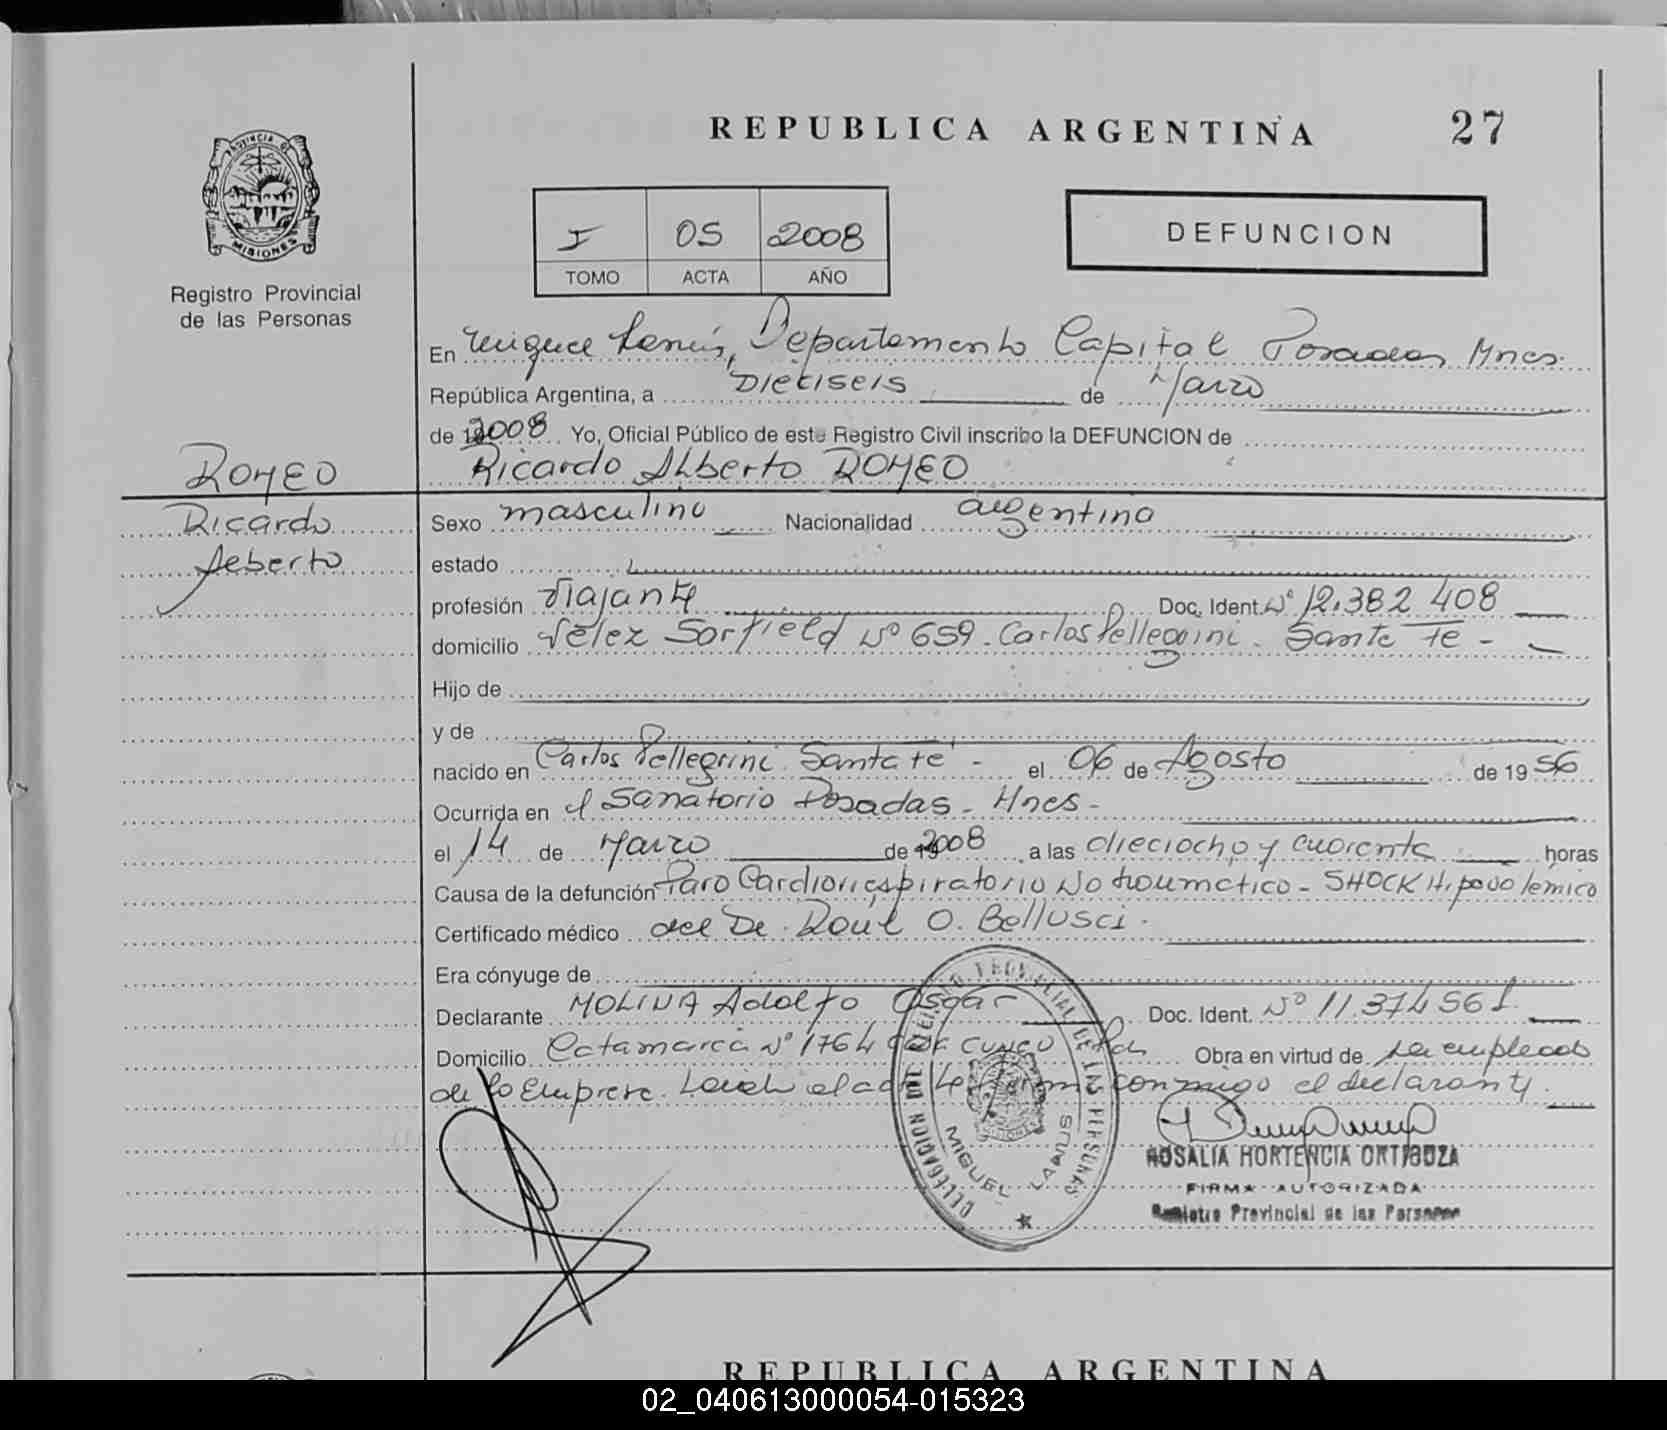 REPUBLICA ARGENTINA 27
PROVINCIA DE
MISIONES
Registro Provincial
de las Personas
I 05 2008
TOMO ACTA AÑO
DEFUNCION
En Miguel Lanús, Departamento Capital Posadas Mnes.
República Argentina, a Dieciseis de Marzo
de 2008 Yo, Oficial Público de este Registro Civil inscribo la DEFUNCION de
Ricardo Alberto ROMEO
ROMEO
Ricardo
Alberto
Sexo masculino Nacionalidad argentina
estado
profesión Viajante Doc. Ident. Nº 12.382.408
domicilio Vélez Sarfield Nº 659. Carlos Pellegrini. Santa Fe -
Hijo de
y de
nacido en Carlos Pellegrini Santa Fe - el 06 de Agosto de 1956
Ocurrida en el Sanatorio Posadas - Mnes -
el 14 de Marzo de 2008 a las dieciocho y cuarenta horas
Causa de la defunción Paro Cardiorrespiratorio No traumatico - SHOCK Hipovolemico
Certificado médico del Dr. Raúl O. Bellusci.
Era cónyuge de
Declarante MOLINA Adolfo Oscar Doc. Ident. Nº 11.374561
Domicilio Catamarca Nº 1764 Pdas Obra en virtud de ser empleado
de la Empresa. Leida el acta firma conmigo el declarante.
DELEGACION DEL REGISTRO PROVINCIAL DE LAS PERSONAS
MIGUEL LANUS
ROSALIA HORTENCIA ORTIGOZA
FIRMA AUTORIZADA
Registro Provincial de las Personas
REPUBLICA ARGENTINA
02_040613000054-015323